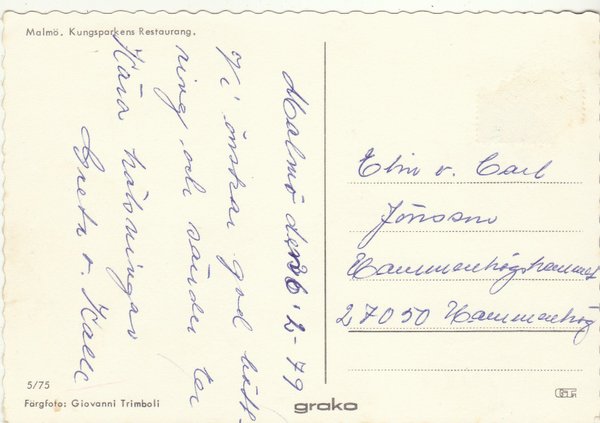 Malmö. Kungsparkens Restaurang.
Malmö den 26/2-79
Vi önskar god bätt-
ring, och sänder er
Kära hälsningar
Greta o. Kalle
Elin o. Carl
Jönsson
Hammenhögshemmet
27050 Hammenhög
5/75
Färgfoto: Giovanni Trimboli
grako